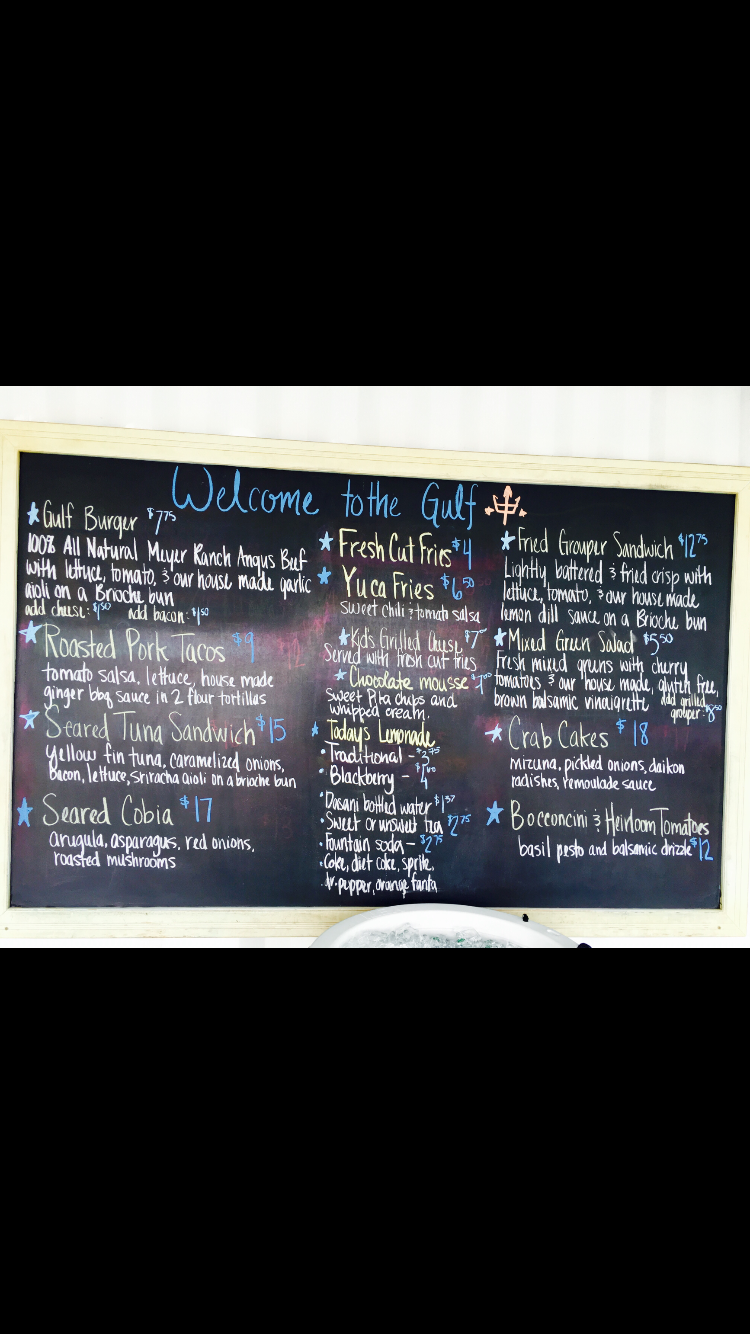 Welcome to the Gulf
Gulf Burger $7.75
100% All Natural Meyer Ranch Angus Beef
with lettuce, tomato, & our house made garlic
aioli on a Brioche bun
add cheese: $1.50 add bacon: $1.50
Roasted Pork Tacos $9
tomato salsa, lettuce, house made
ginger bbq sauce in 2 flour tortillas
Seared Tuna Sandwich $15
yellow fin tuna, caramelized onions,
bacon, lettuce, sriracha aioli on a brioche bun
Seared Cobia $17
arugula, asparagus, red onions,
roasted mushrooms
Fresh Cut Fries $4
Yuca Fries $6.50
Sweet chili & tomato salsa
Kids Grilled Cheese $7
Served with fresh cut fries
Chocolate mousse
Sweet Pita chips and
whipped cream.
Today's Lemonade
Traditional - $3.75
Blackberry -
Dasani bottled water
Sweet or unsweet tea $2.75
Fountain soda - $2.75
Coke, diet coke, sprite,
dr. pepper, orange fanta
Fried Grouper Sandwich $12.75
Lightly battered & fried crisp with
lettuce, tomato, & our house made
lemon dill sauce on a Brioche bun
Mixed Green Salad $5.50
Fresh mixed greens with cherry
tomatoes & our house made, gluten free,
brown balsamic vinaigrette add grilled
grouper: $8.50
Crab Cakes $18
mizuna, pickled onions, daikon
radishes, remoulade sauce
Bocconcini & Heirloom Tomatoes
basil pesto and balsamic drizzle $12